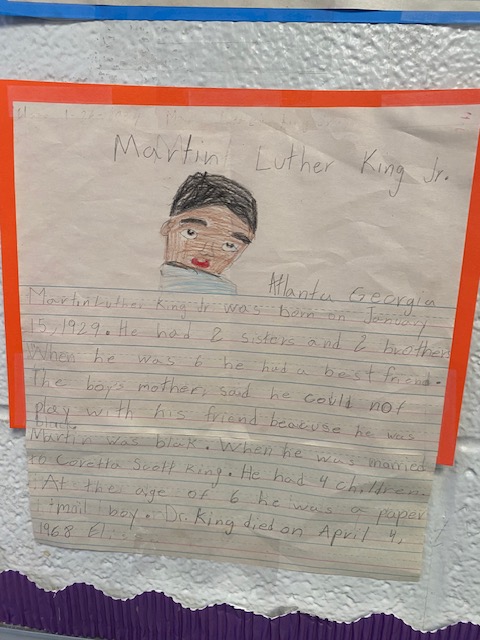 Martin Luther King Jr.
Atlanta Georgia
Martin Luther King Jr was born on January
15, 1929. He had 2 sisters and 2 brother
When he was 6 he had a best friend.
The boys mother, said he could not
play with his friend beacuse he was
black.
Martin was blak. When he was married
to Coretta Scott King. He had 4 children.
At the age of 6 he was a paper
mail boy. Dr. King died on April 4,
1968